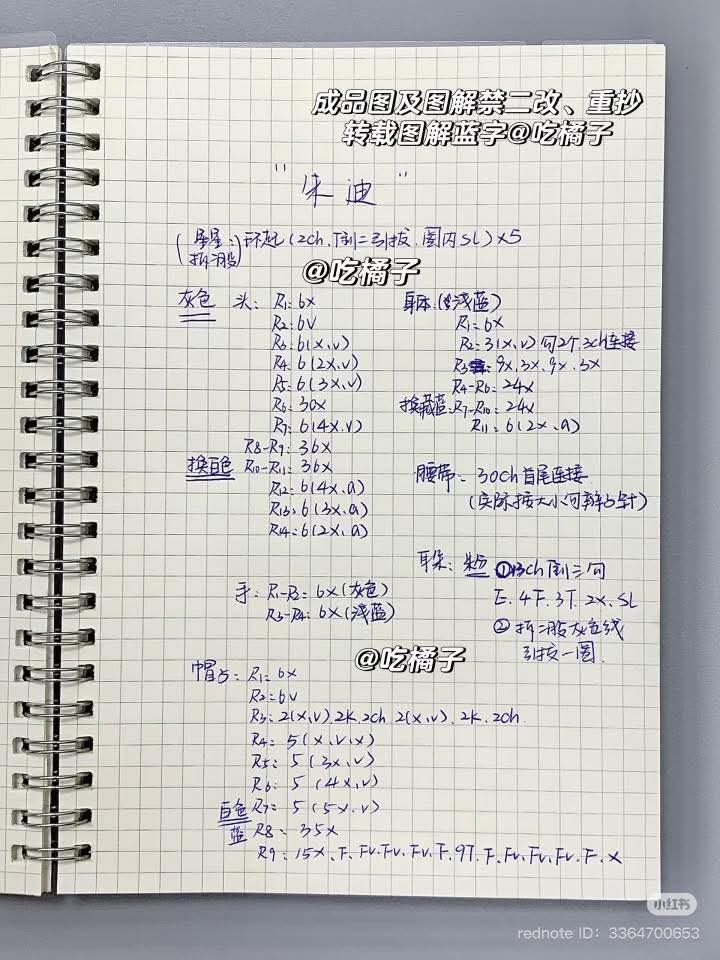 成品图及图解禁二改、重抄
转载图解蓝字@吃橘子
"朱迪"
(星星: 环起(2ch.倒二引拔.圈内SL)×5
拆2股)
@吃橘子
灰色 头: R1: 6x
R2: 6v
R3: 6(x,v)
R4: 6(2x,v)
R5: 6(3x,v)
R6: 30x
R7: 6(4x.v)
R8-R9: 36x
换白色 R10-R11: 36x
R12: 6(4x,a)
R13: 6(3x,a)
R14: 6(2x,a)
手: R1-R2: 6x(灰色)
R3-R4: 6x(浅蓝)
身体:(浅蓝)
R1: 6x
R2: 3(x,v)勾2个3ch连接
R3: 9x.3x.9x.3x
R4-R6: 24x
换藏蓝: R7-R10: 24x
R11: 6(2x.a)
腰带: 30ch首尾连接
(实际按大小勾辫子针)
耳朵: ①13ch倒三勾
E.4F.3T.2x.SL
②拆2股灰色线
引拔一圈.
@吃橘子
帽子: R1: 6x
R2: 6v
R3: 2(x,v).2K.2ch 2(x,v).2K.2ch
R4: 5(x.v.x)
R5: 5(3x,v)
R6: 5(4x,v)
白色 R7: 5(5x.v)
蓝 R8: 35x
R9: 15x.F.Fv.Fv.Fv.F.9T.F.Fv.Fv.Fv.F.x
小红书
rednote ID: 3364700653